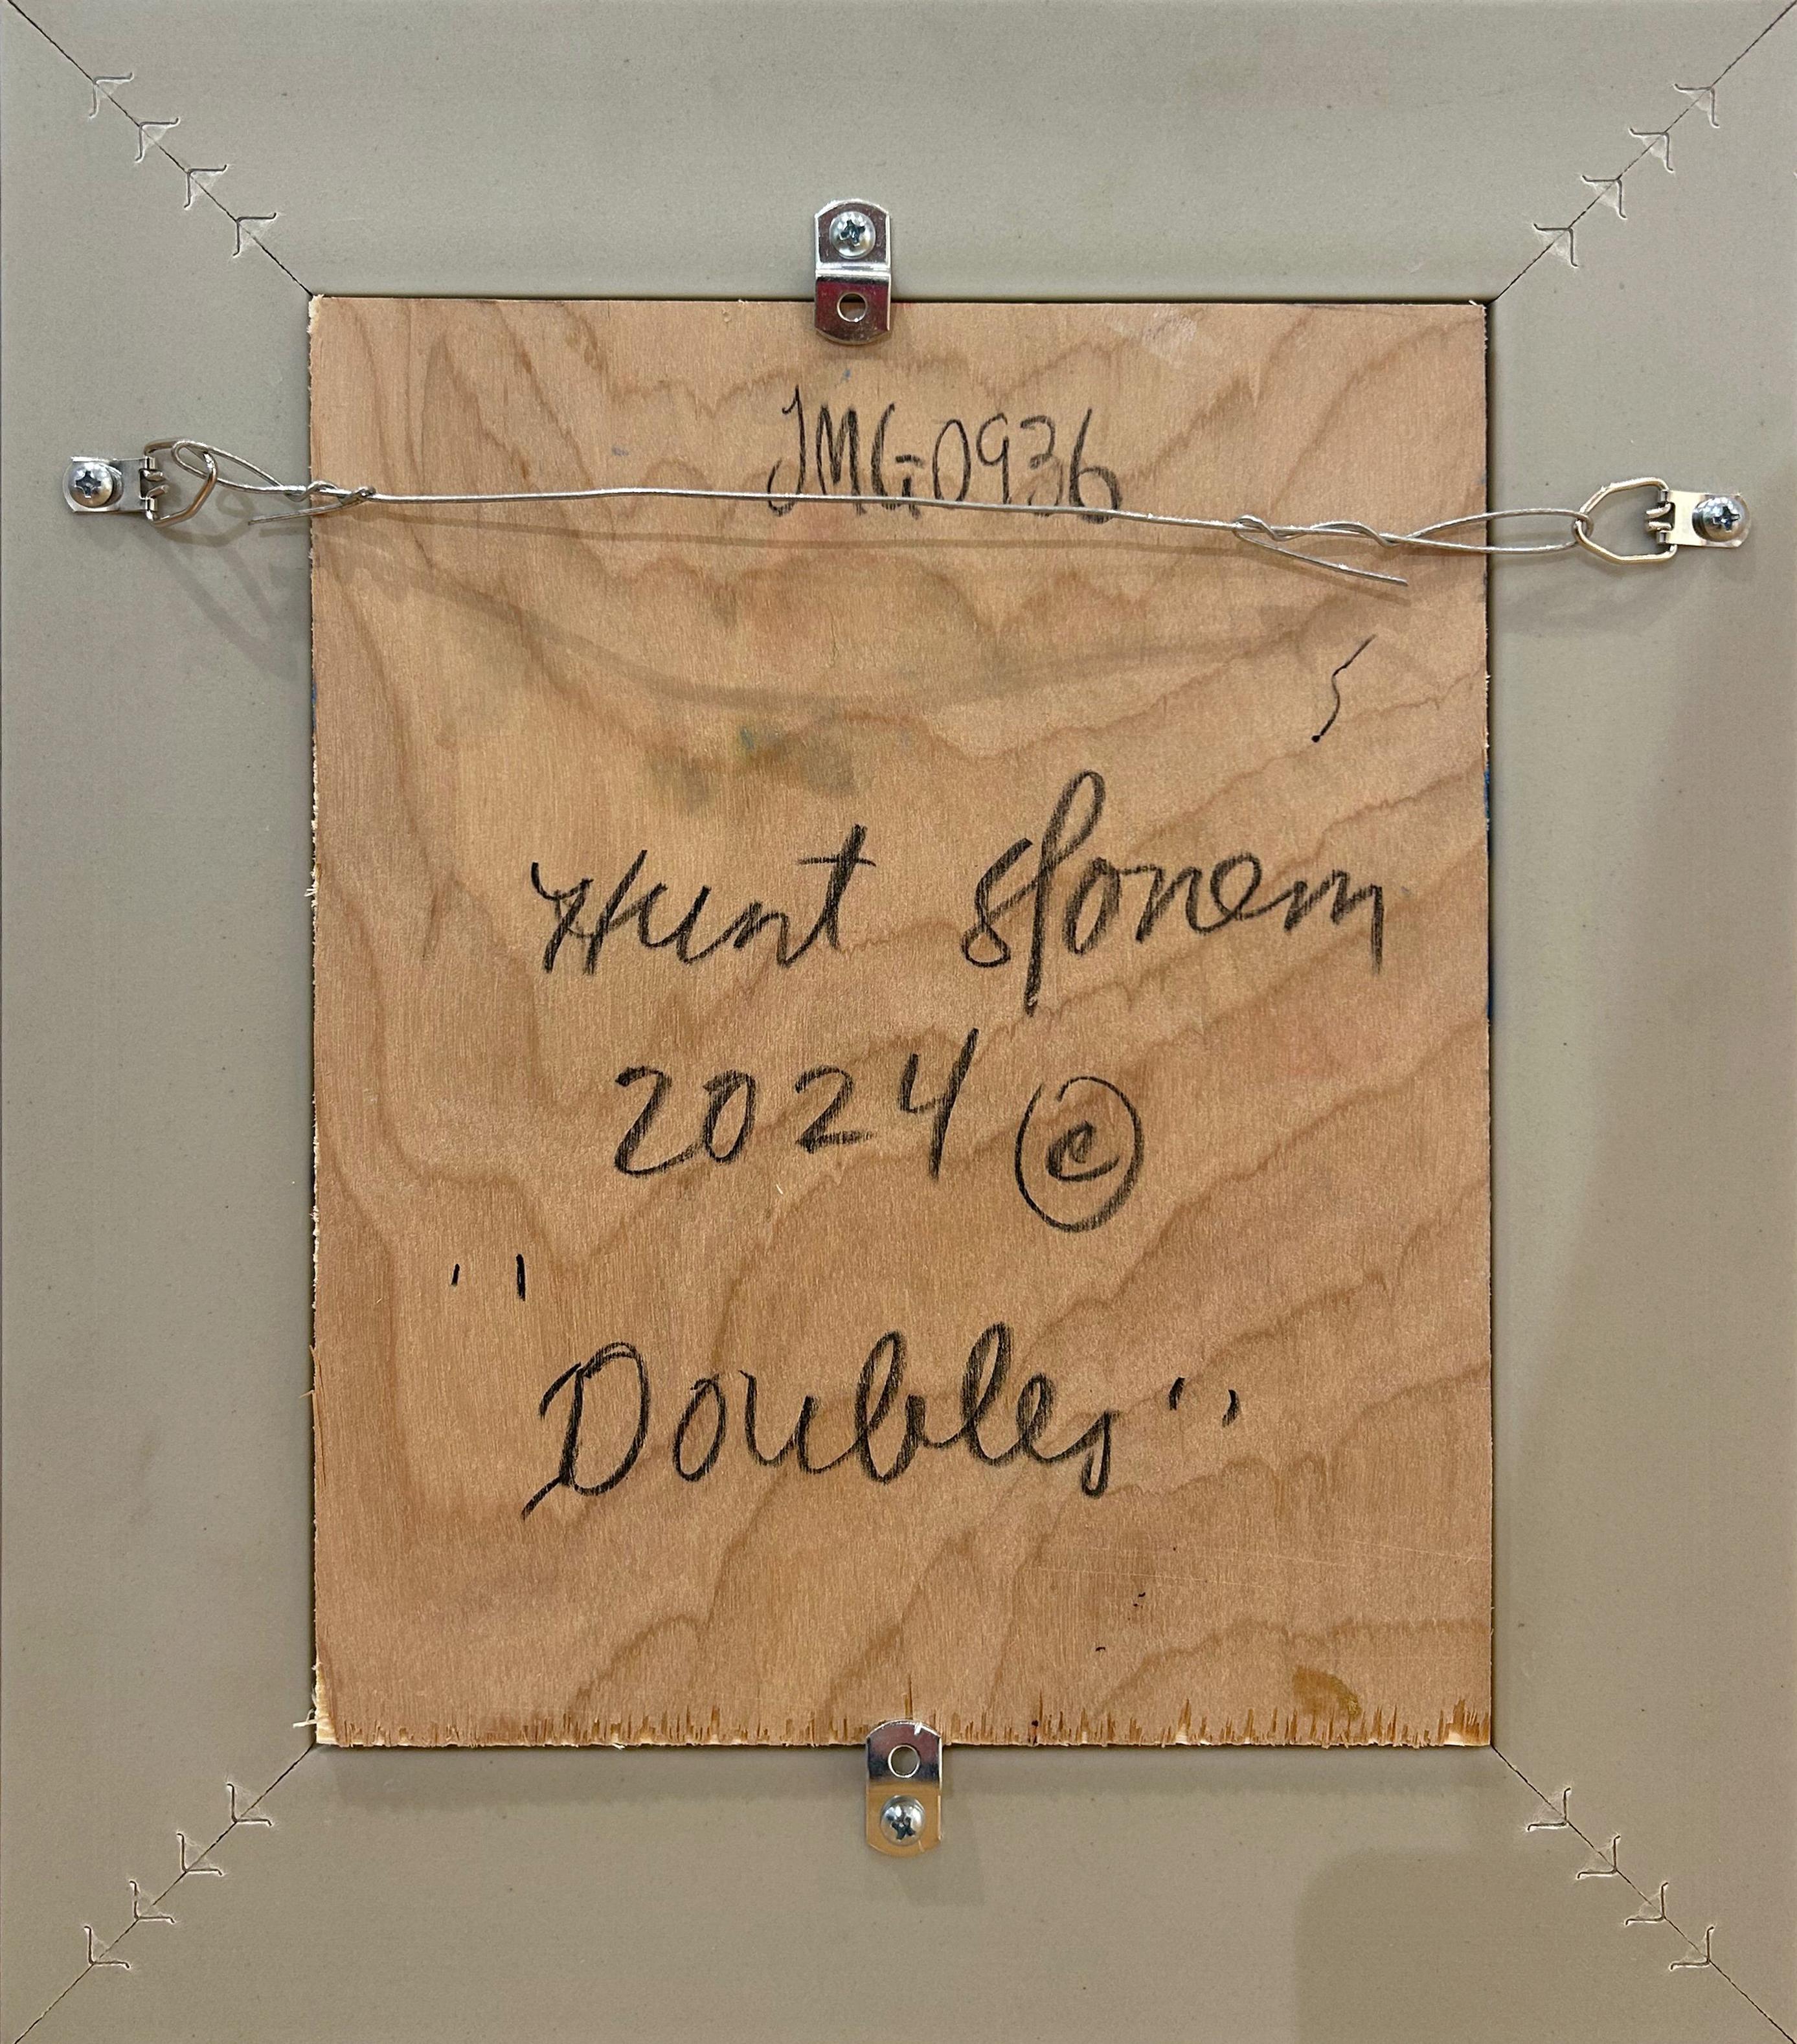 JMG0936
Hunt Slonem
2024 ©
"Doubles"